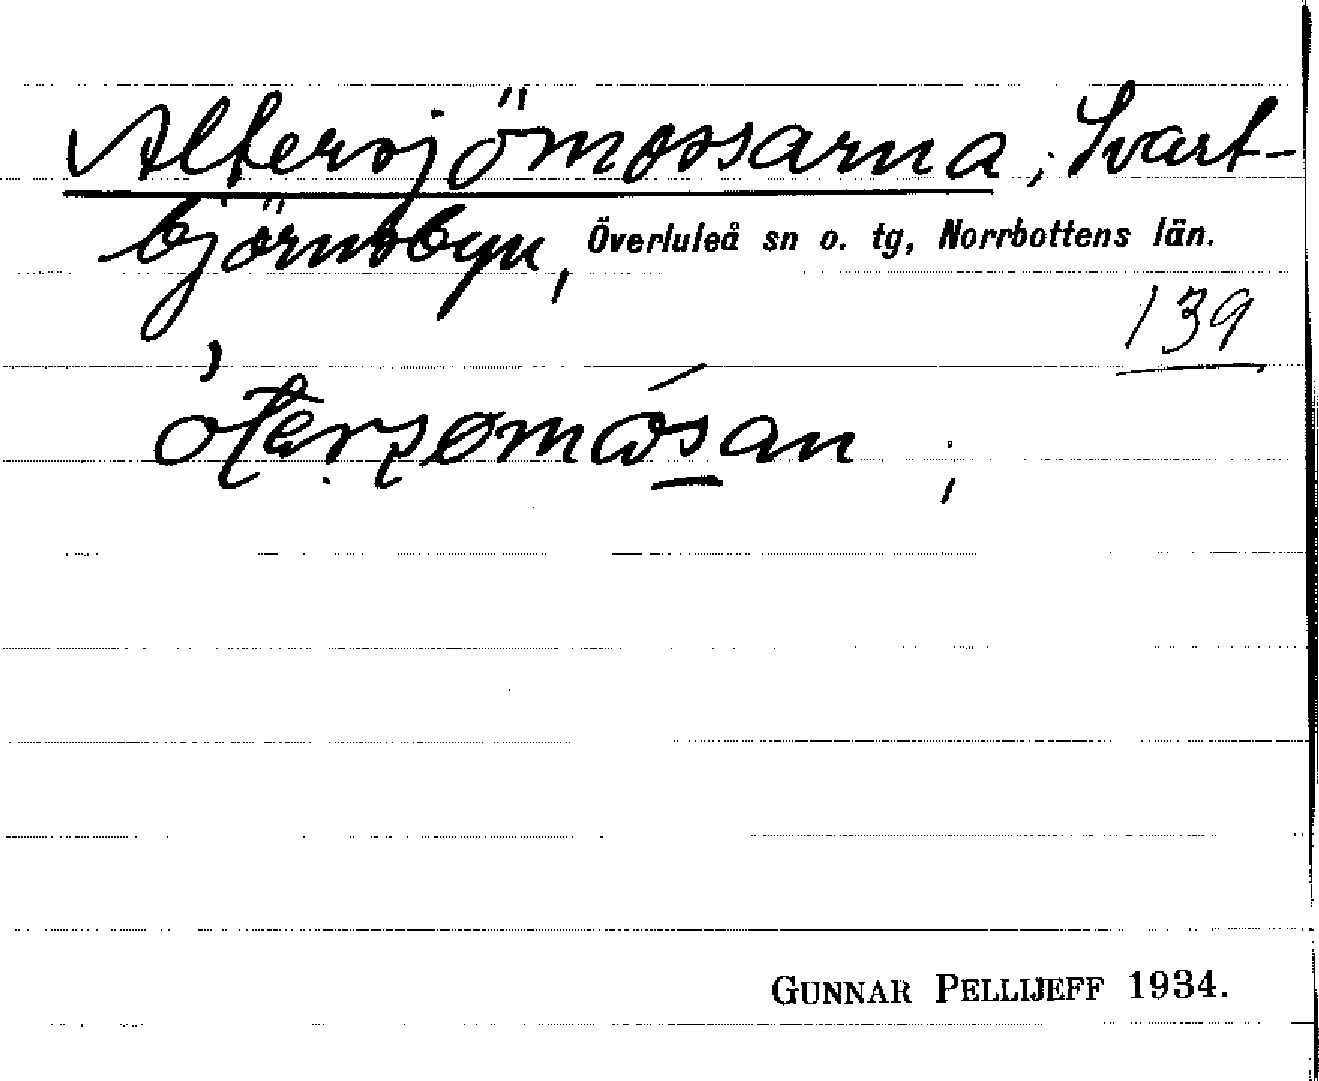 Altersjömossarna; Svart-
björnsbyn, Överluleå sn o. tg, Norrbottens län.
139
GUNNAR PELLIJEFF 1934.